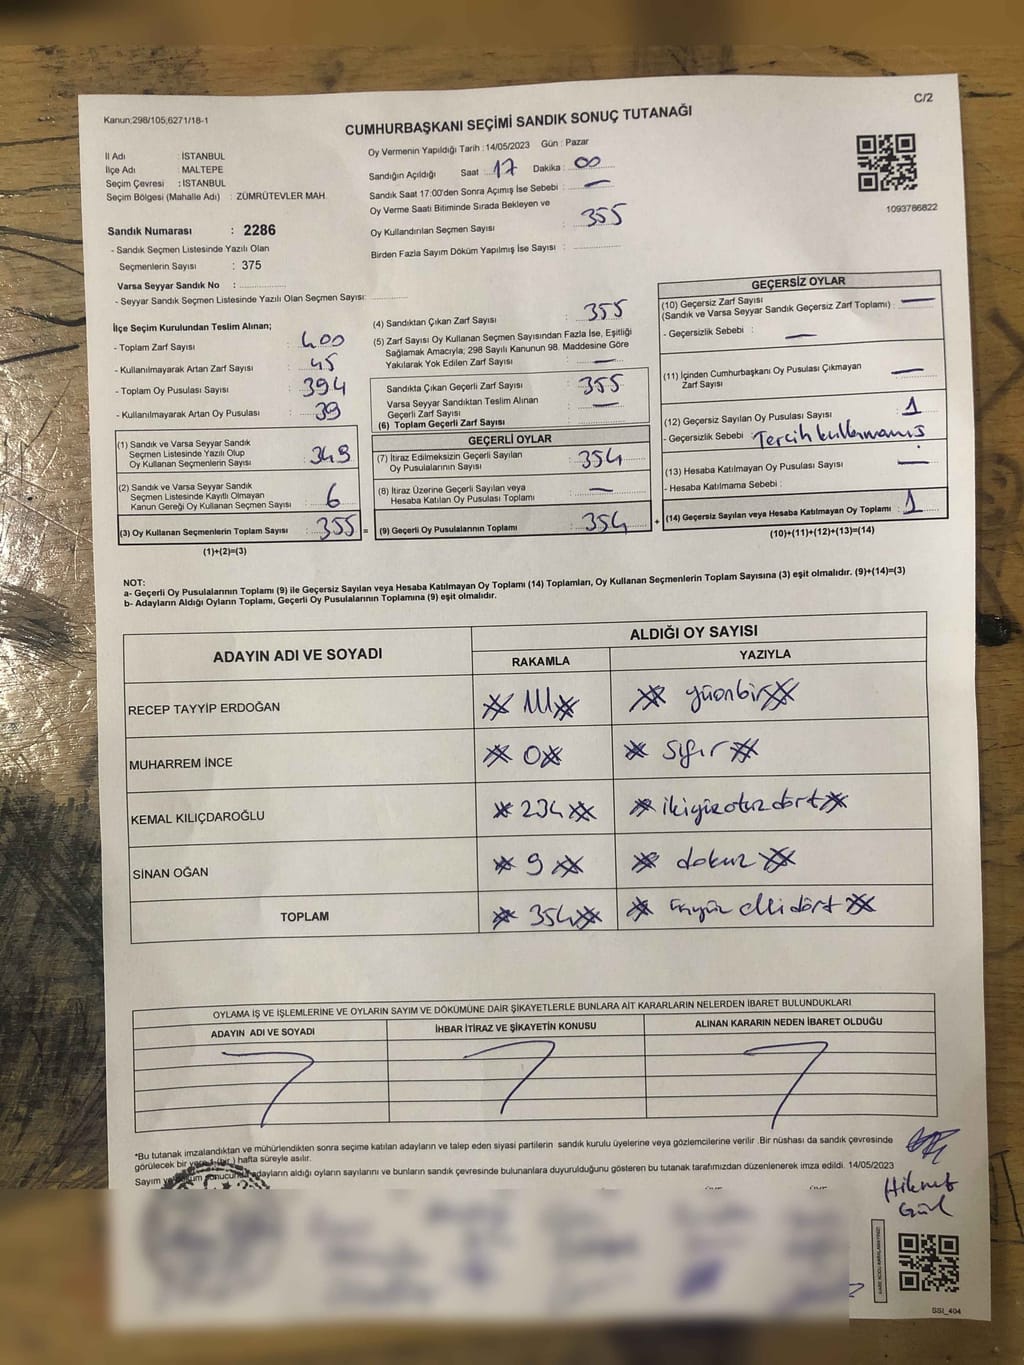 C/2
Kanun;298/105;6271/18-1
CUMHURBAŞKANI SEÇİMİ SANDIK SONUÇ TUTANAĞI
İl Adı : İSTANBUL
İlçe Adı : MALTEPE
Seçim Çevresi : İSTANBUL
Seçim Bölgesi (Mahalle Adı) : ZÜMRÜTEVLER MAH.
Oy Vermenin Yapıldığı Tarih : 14/05/2023 Gün : Pazar
Sandığın Açıldığı Saat : 17 Dakika : 00
Sandık Saat 17:00'den Sonra Açımış İse Sebebi : —
Oy Verme Saati Bitiminde Sırada Bekleyen ve
Oy Kullandırılan Seçmen Sayısı : 355
Birden Fazla Sayım Döküm Yapılmış İse Sayısı :
1093786822
Sandık Numarası : 2286
- Sandık Seçmen Listesinde Yazılı Olan
Seçmenlerin Sayısı : 375
Varsa Seyyar Sandık No :
- Seyyar Sandık Seçmen Listesinde Yazılı Olan Seçmen Sayısı:
İlçe Seçim Kurulundan Teslim Alınan;
- Toplam Zarf Sayısı : 400
- Kullanılmayarak Artan Zarf Sayısı : 45
- Toplam Oy Pusulası Sayısı : 394
- Kullanılmayarak Artan Oy Pusulası : 39
(1) Sandık ve Varsa Seyyar Sandık
Seçmen Listesinde Yazılı Olup
Oy Kullanan Seçmenlerin Sayısı : 349
(2) Sandık ve Varsa Seyyar Sandık
Seçmen Listesinde Kayıtlı Olmayan
Kanun Gereği Oy Kullanan Seçmen Sayısı : 6
(3) Oy Kullanan Seçmenlerin Toplam Sayısı : 355 =
(1)+(2)=(3)
(4) Sandıktan Çıkan Zarf Sayısı : 355
(5) Zarf Sayısı Oy Kullanan Seçmen Sayısından Fazla İse, Eşitliği
Sağlamak Amacıyla; 298 Sayılı Kanunun 98. Maddesine Göre
Yakılarak Yok Edilen Zarf Sayısı : —
Sandıkta Çıkan Geçerli Zarf Sayısı : 355
Varsa Seyyar Sandıktan Teslim Alınan
Geçerli Zarf Sayısı : —
(6) Toplam Geçerli Zarf Sayısı :
GEÇERLİ OYLAR
(7) İtiraz Edilmeksizin Geçerli Sayılan
Oy Pusulalarının Sayısı : 354
(8) İtiraz Üzerine Geçerli Sayılan veya
Hesaba Katılan Oy Pusulası Toplamı : —
(9) Geçerli Oy Pusulalarının Toplamı : 354 +
GEÇERSİZ OYLAR
(10) Geçersiz Zarf Sayısı
(Sandık ve Varsa Seyyar Sandık Geçersiz Zarf Toplamı) : —
- Geçersizlik Sebebi : —
(11) İçinden Cumhurbaşkanı Oy Pusulası Çıkmayan
Zarf Sayısı : —
(12) Geçersiz Sayılan Oy Pusulası Sayısı : 1
- Geçersizlik Sebebi : Tercih kullanmamış
(13) Hesaba Katılmayan Oy Pusulası Sayısı : —
- Hesaba Katılmama Sebebi :
(14) Geçersiz Sayılan veya Hesaba Katılmayan Oy Toplamı : 1
(10)+(11)+(12)+(13)=(14)
NOT:
a- Geçerli Oy Pusulalarının Toplamı (9) ile Geçersiz Sayılan veya Hesaba Katılmayan Oy Toplamı (14) Toplamları, Oy Kullanan Seçmenlerin Toplam Sayısına (3) eşit olmalıdır. (9)+(14)=(3)
b- Adayların Aldığı Oyların Toplamı, Geçerli Oy Pusulalarının Toplamına (9) eşit olmalıdır.
ADAYIN ADI VE SOYADI ALDIĞI OY SAYISI
RAKAMLA YAZIYLA
RECEP TAYYİP ERDOĞAN 111 yüzonbir
MUHARREM İNCE 0 sıfır
KEMAL KILIÇDAROĞLU 234 ikiyüzotuzdört
SİNAN OĞAN 9 dokuz
TOPLAM 354 üçyüz elli dört
OYLAMA İŞ VE İŞLEMLERİNE VE OYLARIN SAYIM VE DÖKÜMÜNE DAİR ŞİKAYETLERLE BUNLARA AİT KARARLARIN NELERDEN İBARET BULUNDUKLARI
ADAYIN ADI VE SOYADI İHBAR İTİRAZ VE ŞİKAYETİN KONUSU ALINAN KARARIN NEDEN İBARET OLDUĞU
*Bu tutanak imzalandıktan ve mühürlendikten sonra seçime katılan adayların ve talep eden siyasi partilerin sandık kurulu üyelerine veya gözlemcilerine verilir .Bir nüshası da sandık çevresinde
görülecek bir yere 1 (bir ) hafta süreyle asılır.
Sayım ve döküm sonucunda adayların aldığı oyların sayılarını ve bunların sandık çevresinde bulunanlara duyurulduğunu gösteren bu tutanak tarafımızdan düzenlenerek imza edildi. 14/05/2023
Hikmet
Gül
SSİ_404